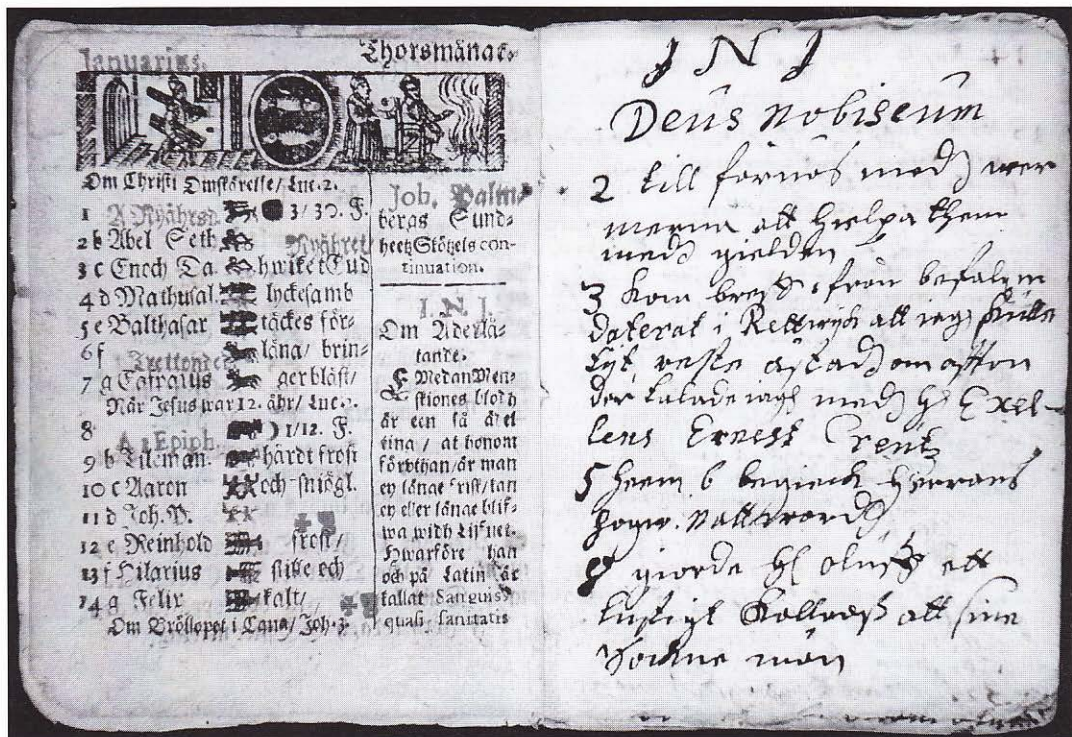 Januarius.
Thorsmånat.
Om Christi Omskärelse/ Luc. 2.
1 A Nyåhrsd. 3/30. F.
2 b Abel Seth Nyåhret/
3 c Enoch Da hwiket Gud
4 d Mathusal. lyckesamb
5 e Balthasar täckes för-
6 f Trettonde läna/ brin-
7 g Casparus ger bläst/
När Jesus war 12. åhr/ Luc. 2.
8 A 1 Epiph. 1/12. F.
9 b Tileman. hårdt frost
10 c Aaron och sniögl.
11 d Joh.
12 e Reinhold frost/
13 f Hilarius och
14 g Felix kalt/
Om Bröllopet i Cana/ Joh. 2.
Joh. Palm-
bergs Sund-
heetz Skötzels con-
tinuation.
I. N. J.
Om Aderlå-
tande.
Medan Men-
niskiones blodh
är een så ädel
ting / at honom
förvthan/ är man
ey länge frisk/ kan
ey eller länge blif-
wa widh Lifvet.
Hwarföre han
och på Latin är
kallat Sanguis,
quasi sanitatis
J N J
Deus nobiscum
2 till förnös medh wer
menna att hielpa them
medh gielden
3 kom breff ifrån befaln
daterat i Rettwyk att iag skulle
resa åstadh om affton
der talade iagh medh h Exel-
lens Ernest Creutz
5 heem 6 begieck herrans
högw. Nattward
8 giorde h oluff ett
lustigt att sine
Sockne män